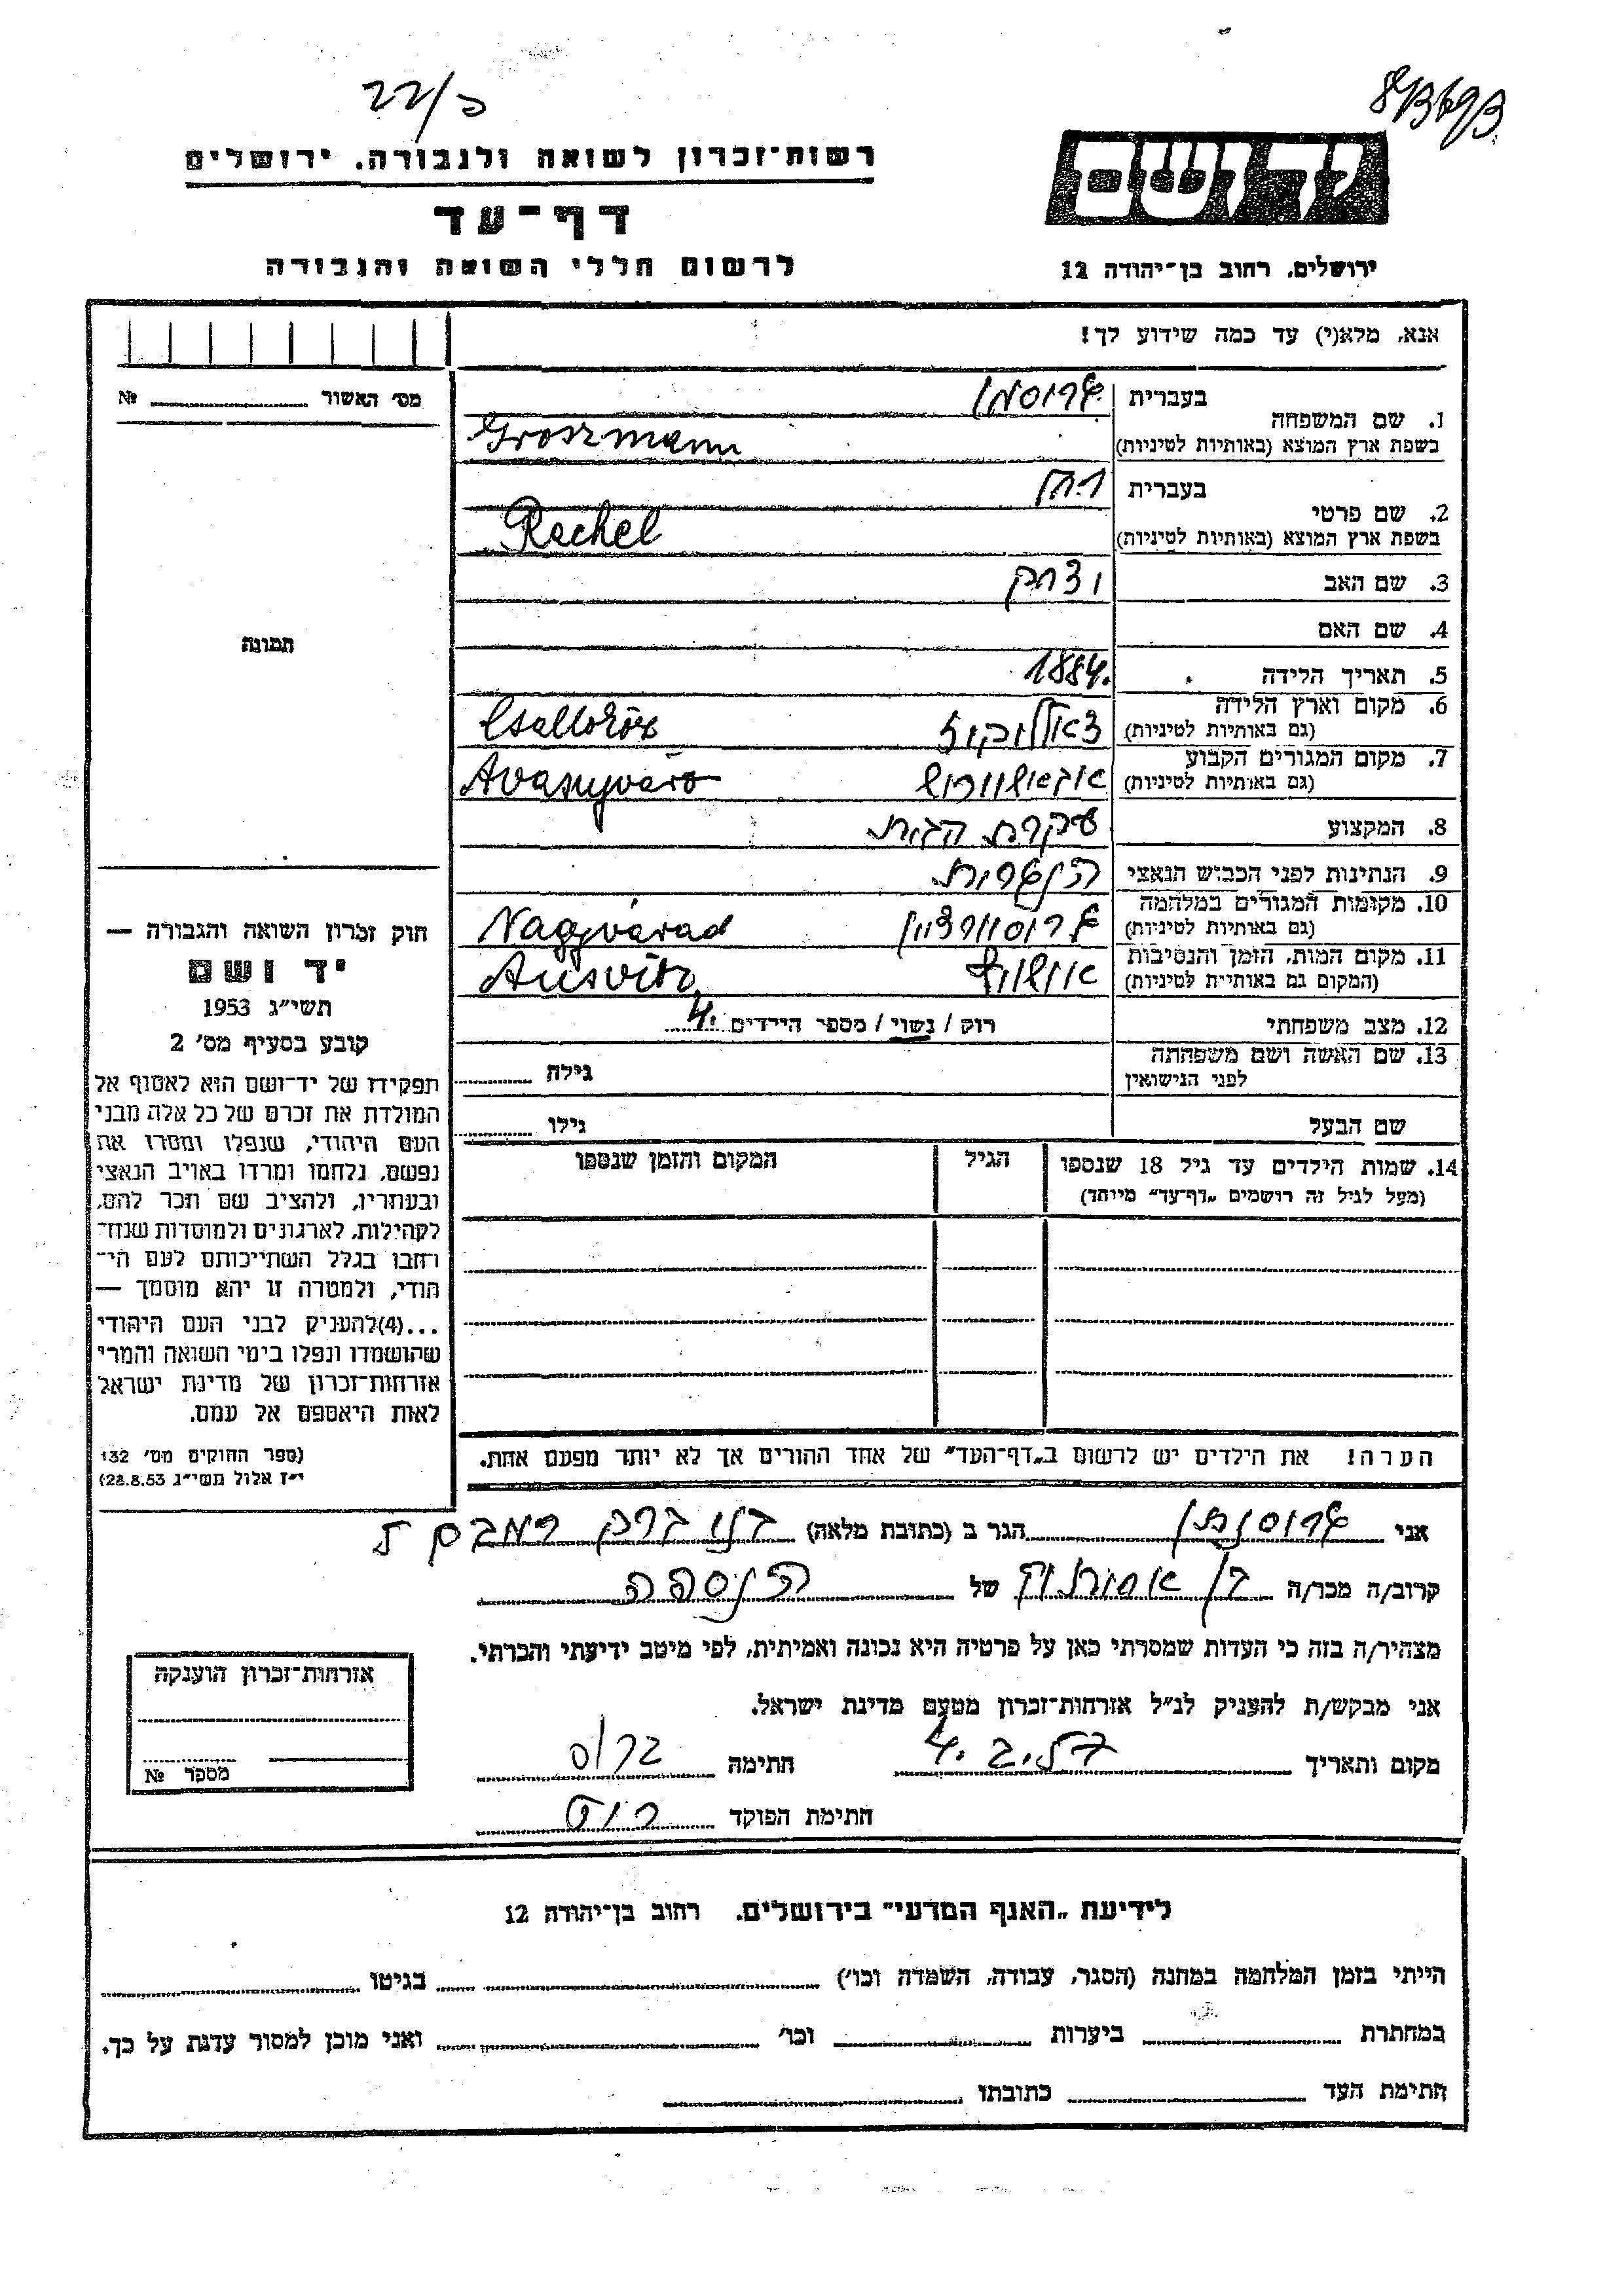 כ/22
רשות־זכרון לשואה ולגבורה. ירושלים
דף־עד
לרשום חללי השואה והגבורה
יד ושם
ירושלים, רחוב בן־יהודה 12
אנא, מלא(י) עד כמה שידוע לך!
מס׳ האשור № 
תמונה
1. שם המשפחה
בעברית גרוסמן
בשפת ארץ המוצא (באותיות לטיניות) Groszmann
2. שם פרטי
בעברית רחל
בשפת ארץ המוצא (באותיות לטיניות) Rachel
3. שם האב יצחק
4. שם האם
5. תאריך הלידה 1884.
6. מקום וארץ הלידה
(גם באותיות לטיניות) Csallóköz
7. מקום המגורים הקבוע
(גם באותיות לטיניות)
8. המקצוע עקרת הבית
9. הנתינות לפני הכבוש הנאצי הונגרית
10. מקומות המגורים במלחמה
(גם באותיות לטיניות) גרוסוורדיין Nagyvárad
11. מקום המות, הזמן והנסיבות
(המקום גם באותיית לטיניות) אושוויץ Ausvitz
12. מצב משפחתי רוק / נשוי / מספר הילדים 4.
13. שם האשה ושם משפחתה
לפני הנישואין גילה
שם הבעל גילו
14. שמות הילדים עד גיל 18 שנספו הגיל המקום והזמן שנספו
(מעל לגיל זה רושמים „דף־עד״ מיוחד)
הערה! את הילדים יש לרשום ב„דף־העד״ של אחד ההורים אך לא יותר מפעם אחת.
חוק זכרון השואה והגבורה —
יד ושם
תשי״ג 1953
קובע בסעיף מס׳ 2
תפקידו של יד־ושם הוא לאסוף אל
המולדת את זכרם של כל אלה מבני
העם היהודי, שנפלו ומסרו את
נפשם, נלחמו ומרדו באויב הנאצי
ובעוזריו, ולהציב שם וזכר להם,
לקהילות, לארגונים ולמוסדות שנח־
רחבו בגלל השתייכותם לעם הי־
הודי, ולמטרה זו יהא מוסמך —
...(4)להעניק לבני העם היהודי
שהושמדו ונפלו בימי השואה והמרי
אזרחות־זכרון של מדינת ישראל
לאות היאספם אל עמם.
(ספר החוקים מס׳ 132
י״ז אלול תשי״ג 28.8.53)
אני גרוסמן הגר ב (כתובת מלאה) בני ברק
קרוב/ה מכר/ה בן של הנספה
מצהיר/ה בזה כי העדות שמסרתי כאן על פרטיה היא נכונה ואמיתית, לפי מיטב ידיעתי והכרתי.
אני מבקש/ת להעניק לנ״ל אזרחות־זכרון מטעם מדינת ישראל.
מקום ותאריך חתימה
חתימת הפוקד
אזרחות־זכרון הוענקה
מספר №
לידיעת „האגף המדעי״ בירושלים. רחוב בן־יהודה 12
הייתי בזמן המלחמה במחנה (הסגר, עבודה, השמדה וכו׳) בגיטו
במחתרת ביערות וכו׳ ואני מוכן למסור עדות על כך.
חתימת העד כתובתו